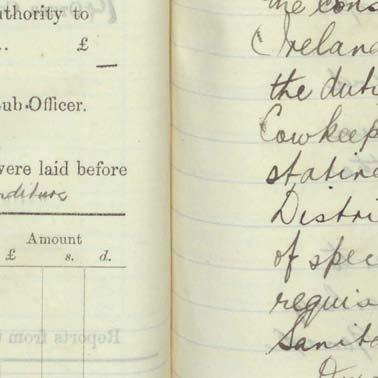 uthority to
.. £
ub-Officer.
were laid before
nditure
Amount
£ s. d.
the cons
(Ireland
the duti
Cowkeep
stating
Distri
of spec
requis
Sanita